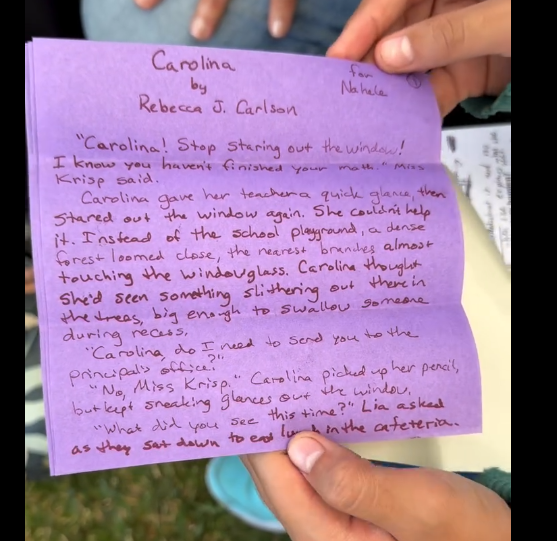 Carolina
by
Rebecca J. Carlson
for
Nahele
"Carolina! Stop staring out the window!
I know you haven't finished your math." Miss
Krisp said.
Carolina gave her teacher a quick glance, then
stared out the window again. She couldn't help
it. Instead of the school playground, a dense
forest loomed close, the nearest branches almost
touching the windowglass. Carolina thought
she'd seen something slithering out there in
the trees, big enough to swallow someone
during recess.
"Carolina, do I need to send you to the
principal's office?"
"No, Miss Krisp." Carolina picked up her pencil,
but kept sneaking glances out the window.
"What did you see this time?" Lia asked
as they sat down to eat lunch in the cafeteria.